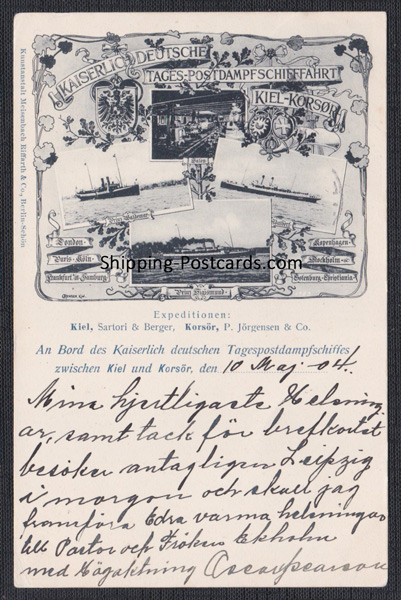 KAISERLICH DEUTSCHE
TAGES-POSTDAMPFSCHIFFAHRT
KIEL-KORSÖR
Kunstanstalt Meisenbach Riffarth & Co., Berlin-Schön
Salon
Prinz Waldemar
London
Paris-Köln
Frankfurt a/M Hamburg
Kopenhagen
Stockholm
Gotenburg-Christiania
Shipping-Postcards.com
Prinz Sigismund
Expeditionen:
Kiel, Sartori & Berger, Korsör, P. Jörgensen & Co.
An Bord des Kaiserlich deutschen Tagespostdampfschiffes
zwischen Kiel und Korsör, den 10 Maj - 04.
Mina hjertligaste Helsning
ar, samt tack för brefkortet
besöker antagligen Leipzig
i morgon och skall jag
framföra Edra varma helsningar
till Pastor och Fröken Ekholm
med Högaktning Oscar